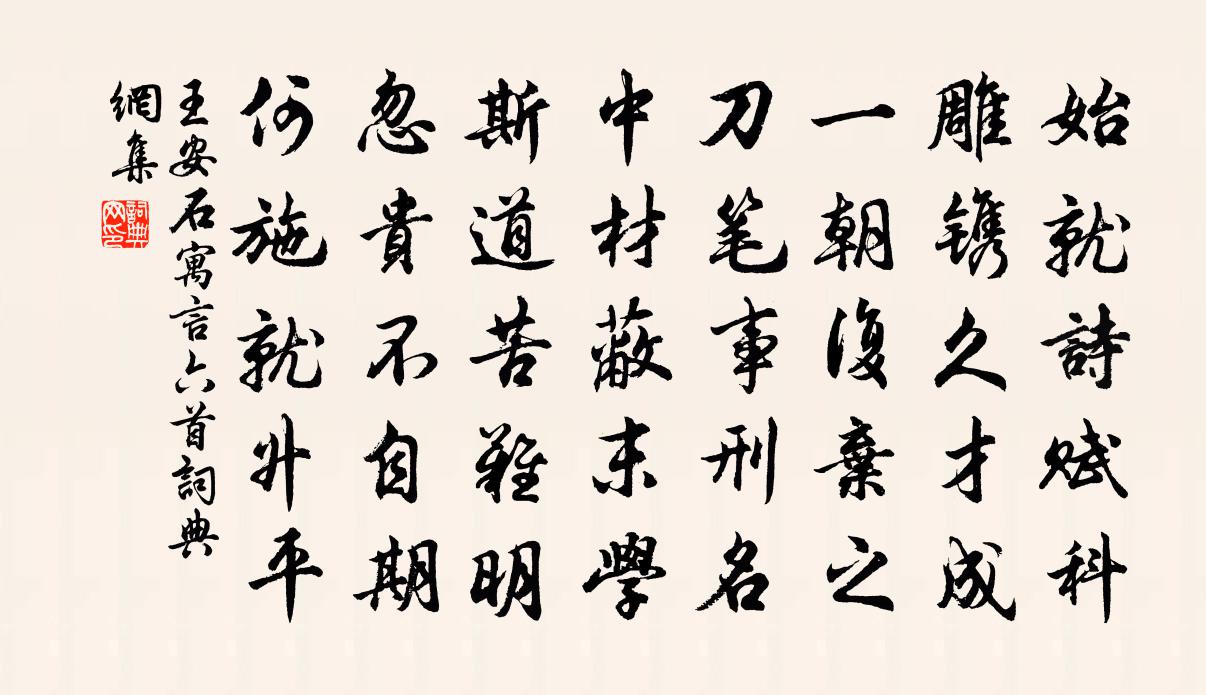 始就詩賦科
雕镌久才成
一朝復棄之
刀笔事刑名
中材蔽末學
斯道苦難明
忽貴不自期
何施就升平
王安石寓言六首詞典
網集
詞典網印